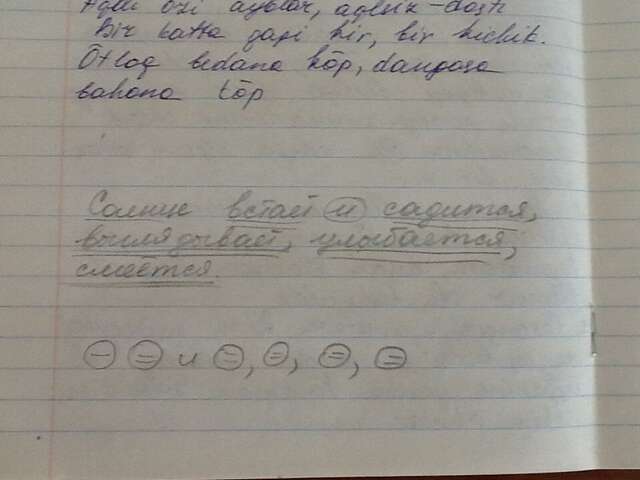 özi ayblar,
Bir katta gapi kir, bir kichik.
Ötloq bedana köp, dangasa
bahona töp
Солнце встаёт и садится,
выглядывает, улыбается,
смеётся.
и , , ,